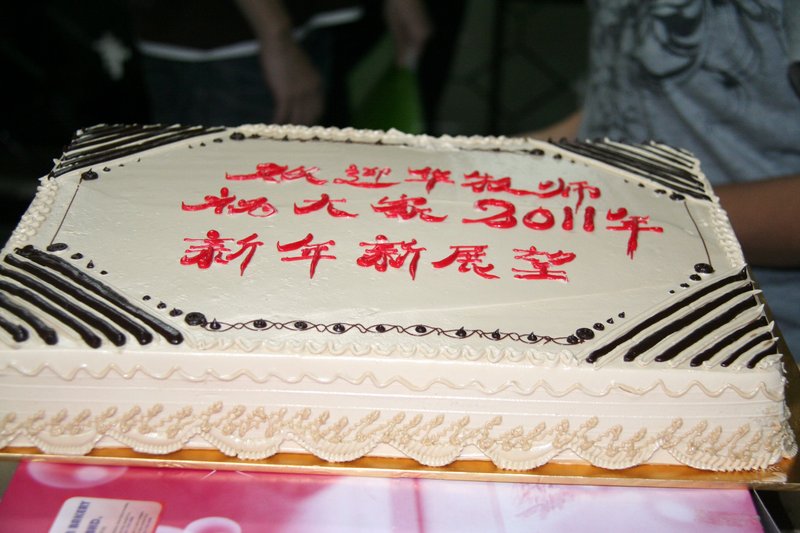 欢迎华牧师
祝大家2011年
新年新展望
BAKERY
BHD.